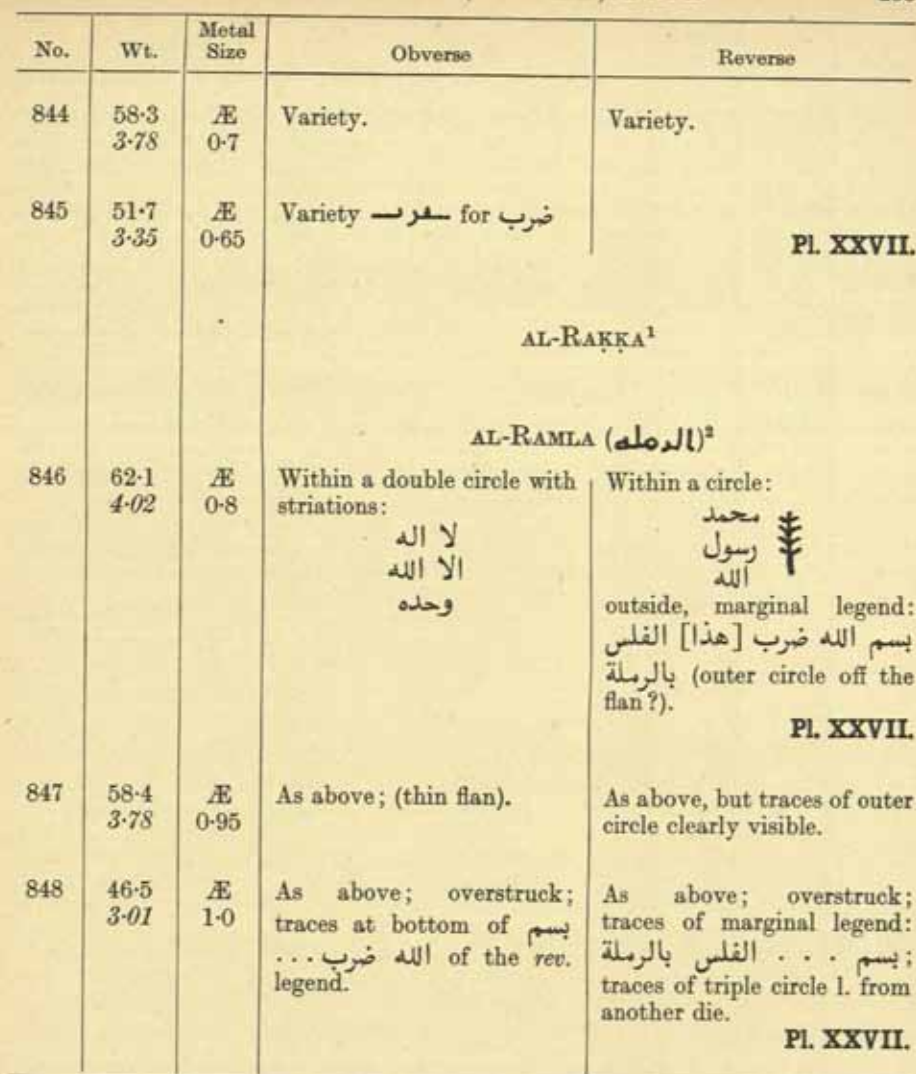 No. Wt. Metal Size Obverse Reverse
844 58·3 Æ Variety. Variety.
3·78 0·7
845 51·7 Æ Variety for ضرب
3·35 0·65 Pl. XXVII.
AL-RAḲḲA¹
AL-RAMLA (الرمله)²
846 62·1 Æ Within a double circle with
4·02 0·8 striations:
لا اله
الا الله
وحده
Within a circle:
محمد
رسول
الله
outside, marginal legend:
بسم الله ضرب [هذا] الفلس
بالرملة (outer circle off the
flan?).
Pl. XXVII.
847 58·4 Æ As above; (thin flan).
3·78 0·95
As above, but traces of outer
circle clearly visible.
848 46·5 Æ As above; overstruck;
3·01 1·0 traces at bottom of بسم
الله ضرب... of the rev.
legend.
As above; overstruck;
traces of marginal legend:
بسم . . . الفلس بالرملة;
traces of triple circle l. from
another die.
Pl. XXVII.